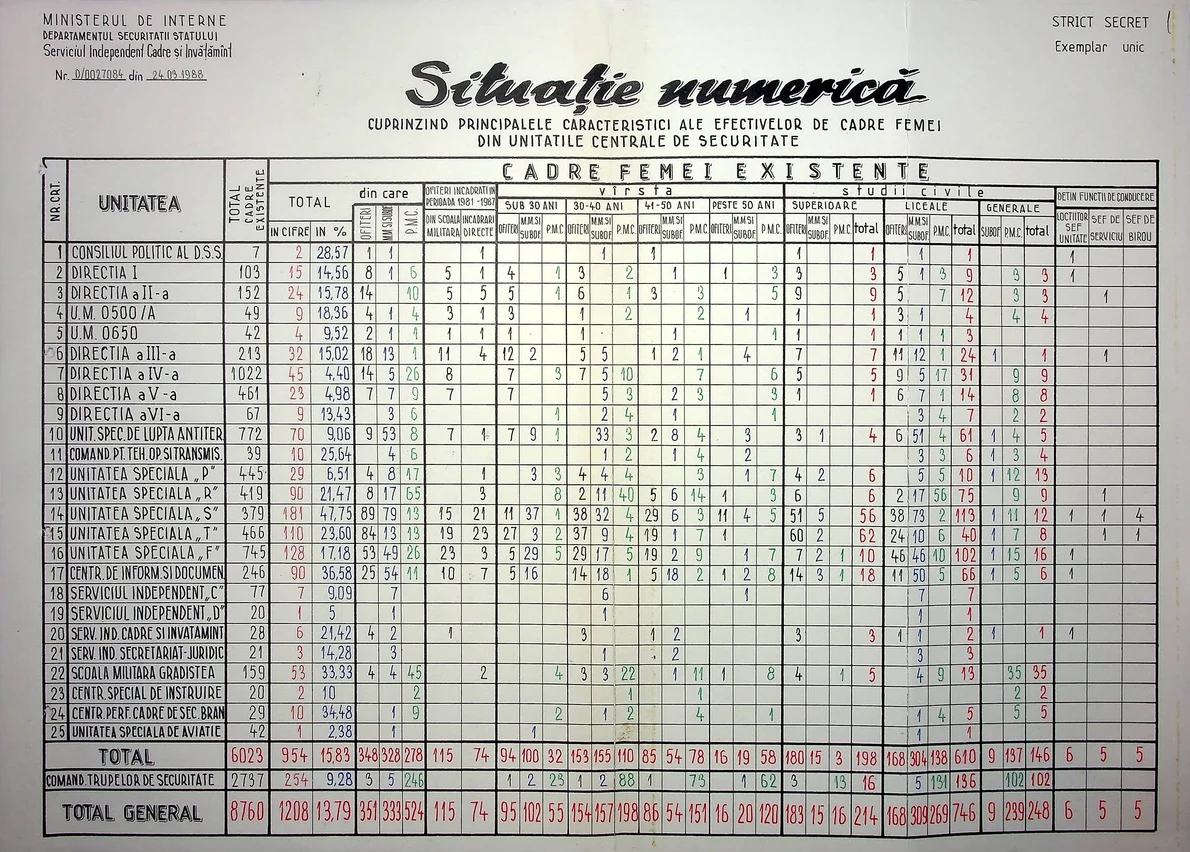 MINISTERUL DE INTERNE
DEPARTAMENTUL SECURITATII STATULUI
Serviciul Independent Cadre și Învățămînt
Nr. D/0027084 din 24.03.1988
STRICT SECRET
Exemplar unic
Situație numerică
CUPRINZIND PRINCIPALELE CARACTERISTICI ALE EFECTIVELOR DE CADRE FEMEI
DIN UNITATILE CENTRALE DE SECURITATE
NR. CRT. UNITATEA TOTAL CADRE EXISTENTE CADRE FEMEI EXISTENTE
TOTAL din care OFITERI INCADRATI IN PERIOADA 1981-1987 vîrsta studii civile DETIN FUNCTII DE CONDUCERE
SUB 30 ANI 30-40 ANI 41-50 ANI PESTE 50 ANI SUPERIOARE LICEALE GENERALE
IN CIFRE IN % OFITERI M.M SI SUBOF P.M.C. DIN SCOALA MILITARA INCADRARI DIRECTE OFITERI M.M SI SUBOF. P.M.C. OFITERI M.M SI SUBOF. P.M.C. OFITERI M.M SI SUBOF. P.M.C. OFITERI M.M SI SUBOF. P.M.C. OFITERI M.M SI SUBOF. P.M.C. total OFITERI M.M SI SUBOF. P.M.C. total SUBOF. P.M.C. total LOCTIITOR SEF UNITATE SEF DE SERVICIU SEF DE BIROU
1 CONSILIUL POLITIC AL D.S.S. 7 2 28,57 1 1 1 1 1 1 1 1 1 1
2 DIRECTIA I 103 15 14,56 8 1 6 5 1 4 1 3 2 1 1 3 3 3 5 1 3 9 3 3 1
3 DIRECTIA a II-a 152 24 15,78 14 10 5 5 5 1 6 1 3 3 5 9 9 5 7 12 3 3 1
4 U.M. 0500/A 49 9 18,36 4 1 4 3 1 3 1 2 2 1 1 1 3 1 4 4 4
5 U.M. 0650 42 4 9,52 2 1 1 1 1 1 1 1 1 1 1 1 1 1 3
6 DIRECTIA a III-a 213 32 15,02 18 13 1 11 4 12 2 5 5 1 2 1 4 7 7 11 12 1 24 1 1 1
7 DIRECTIA a IV-a 1022 45 4,40 14 5 26 8 7 3 7 5 10 7 6 5 5 9 5 17 31 9 9
8 DIRECTIA a V-a 461 23 4,98 7 7 9 7 7 5 3 2 3 3 1 1 6 7 1 14 8 8
9 DIRECTIA a VI-a 67 9 13,43 3 6 1 2 4 1 1 3 4 7 2 2
10 UNIT. SPEC. DE LUPTA ANTITER. 772 70 9,06 9 53 8 7 1 7 9 1 33 3 2 8 4 3 3 1 4 6 51 4 61 1 4 5
11 COMAND. PT. TEH. OP. SI TRANSMIS. 39 10 25,64 4 6 1 2 1 4 2 3 3 6 1 3 4
12 UNITATEA SPECIALA „P" 445 29 6,51 4 8 17 1 3 3 4 4 4 3 1 7 4 2 6 5 5 10 1 12 13
13 UNITATEA SPECIALA „R" 419 90 21,47 8 17 65 3 8 2 11 40 5 6 14 1 3 6 6 2 17 56 75 9 9 1
14 UNITATEA SPECIALA „S" 379 181 47,75 89 79 13 15 21 11 37 1 38 32 4 29 6 3 11 4 5 51 5 56 38 73 2 113 1 11 12 1 1 4
15 UNITATEA SPECIALA „T" 466 110 23,60 84 13 13 19 23 27 3 2 37 9 4 19 1 7 1 60 2 62 24 10 6 40 1 7 8 1 1
16 UNITATEA SPECIALA „F" 745 128 17,18 53 49 26 23 3 5 29 5 29 17 5 19 2 9 1 7 7 2 1 10 46 46 10 102 1 15 16 1
17 CENTR. DE INFORM. SI DOCUMEN. 246 90 36,58 25 54 11 10 7 5 16 14 18 1 5 18 2 1 2 8 14 3 1 18 11 50 5 66 1 5 6 1
18 SERVICIUL INDEPENDENT „C" 77 7 9,09 7 6 1 7 7
19 SERVICIUL INDEPENDENT „D" 20 1 5 1 1 1 1
20 SERV. IND. CADRE SI INVATAMINT 28 6 21,42 4 2 1 3 1 2 3 3 1 1 2 1 1 1
21 SERV. IND. SECRETARIAT-JURIDIC 21 3 14,28 3 1 2 3 3
22 SCOALA MILITARA GRADISTEA 159 53 33,33 4 4 45 2 4 3 3 22 1 11 1 8 4 1 5 4 9 13 35 35
23 CENTR. SPECIAL DE INSTRUIRE 20 2 10 2 1 1 2 2
24 CENTR. PERF. CADRE DE SEC. BRAN 29 10 34,48 1 9 2 1 2 4 1 1 4 5 5 5
25 UNITATEA SPECIALA DE AVIATIE 42 1 2,38 1 1 1 1
TOTAL 6023 954 15,83 348 328 278 115 74 94 100 32 153 155 110 85 54 78 16 19 58 180 15 3 198 168 304 138 610 9 137 146 6 5 5
COMAND. TRUPELOR DE SECURITATE 2737 254 9,28 3 5 246 1 2 23 1 2 88 1 73 1 62 3 13 16 5 131 136 102 102
TOTAL GENERAL 8760 1208 13,79 351 333 524 115 74 95 102 55 154 157 198 86 54 151 16 20 120 183 15 16 214 168 309 269 746 9 239 248 6 5 5